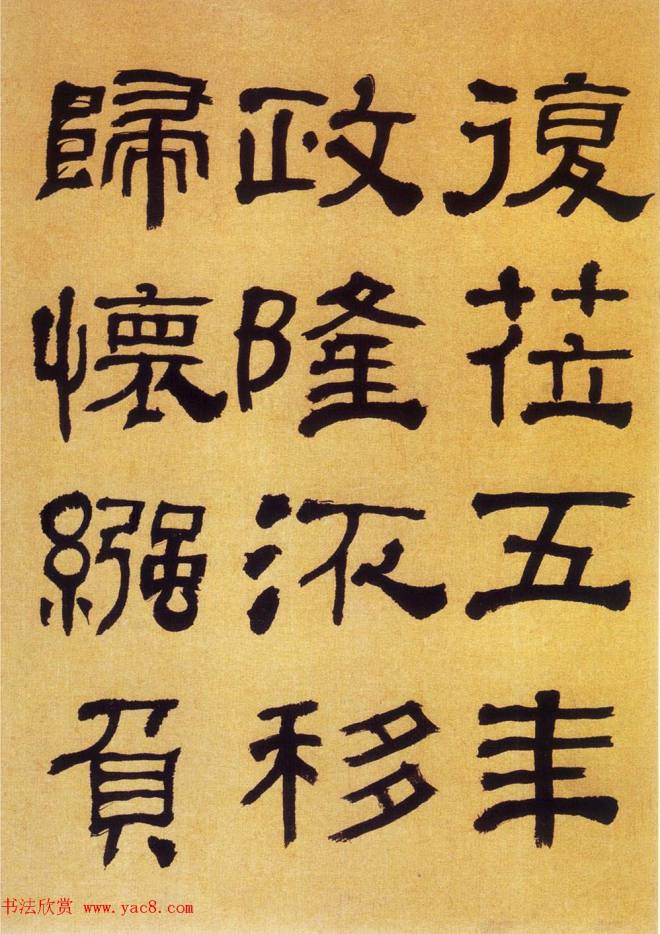 復莅五年
政隆㳅移
歸懷繈負
书法欣赏 www.yac8.com